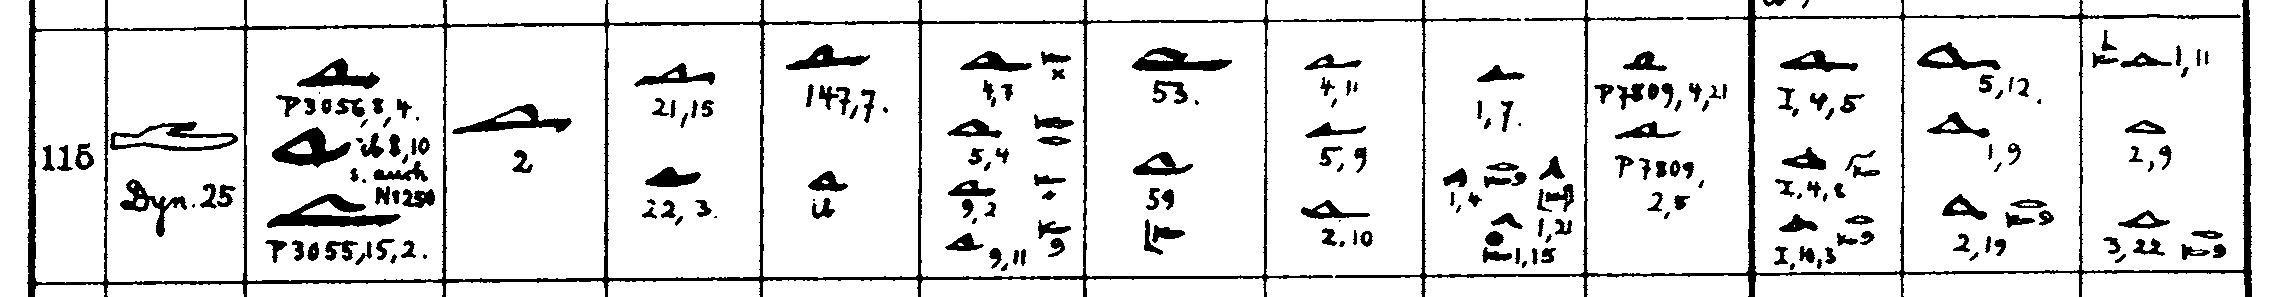 115
Dyn. 25
P3056,8,4.
ib 8,10
s. auch
Nr 250
P3055,15,2.
2
21,15
22,3.
147,7.
ib
4,7
5,4
9,2
9,11
53.
59
4,11
5,9
2,10
1,7.
1,4
1,21
1,15
P7809,4,21
P7809,
2,5
I,4,5
I,4,8
I,10,3
5,12.
1,9
2,19
1,11
2,9
3,22